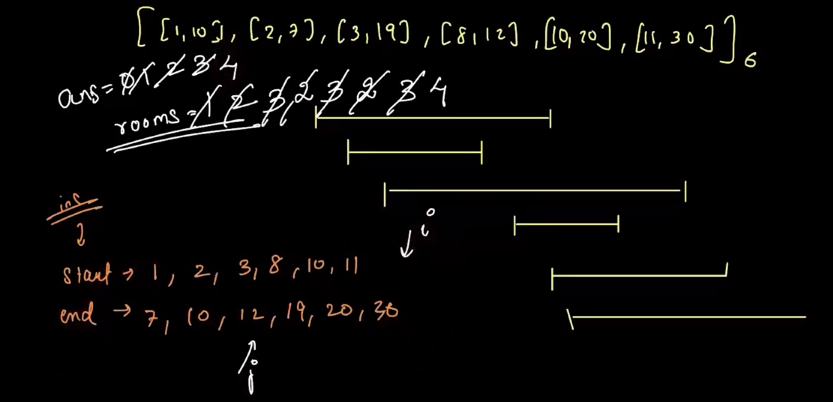 [ [1,10], [2,7], [3,19], [8,12], [10,20], [11,30] ]6
ans = 0 1 2 3 4
rooms = 1 2 3, 2 3 2 3 4
inc
i
start → 1, 2, 3, 8, 10, 11
end → 7, 10, 12, 19, 20, 30
j